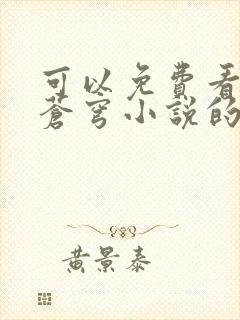 可以免費看
蒼穹小說的
黃景泰